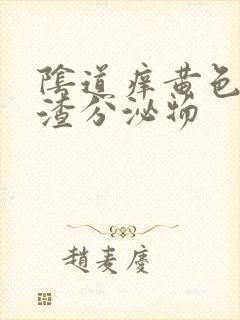 陰道痒黄色
渣分泌物
趙麦慶